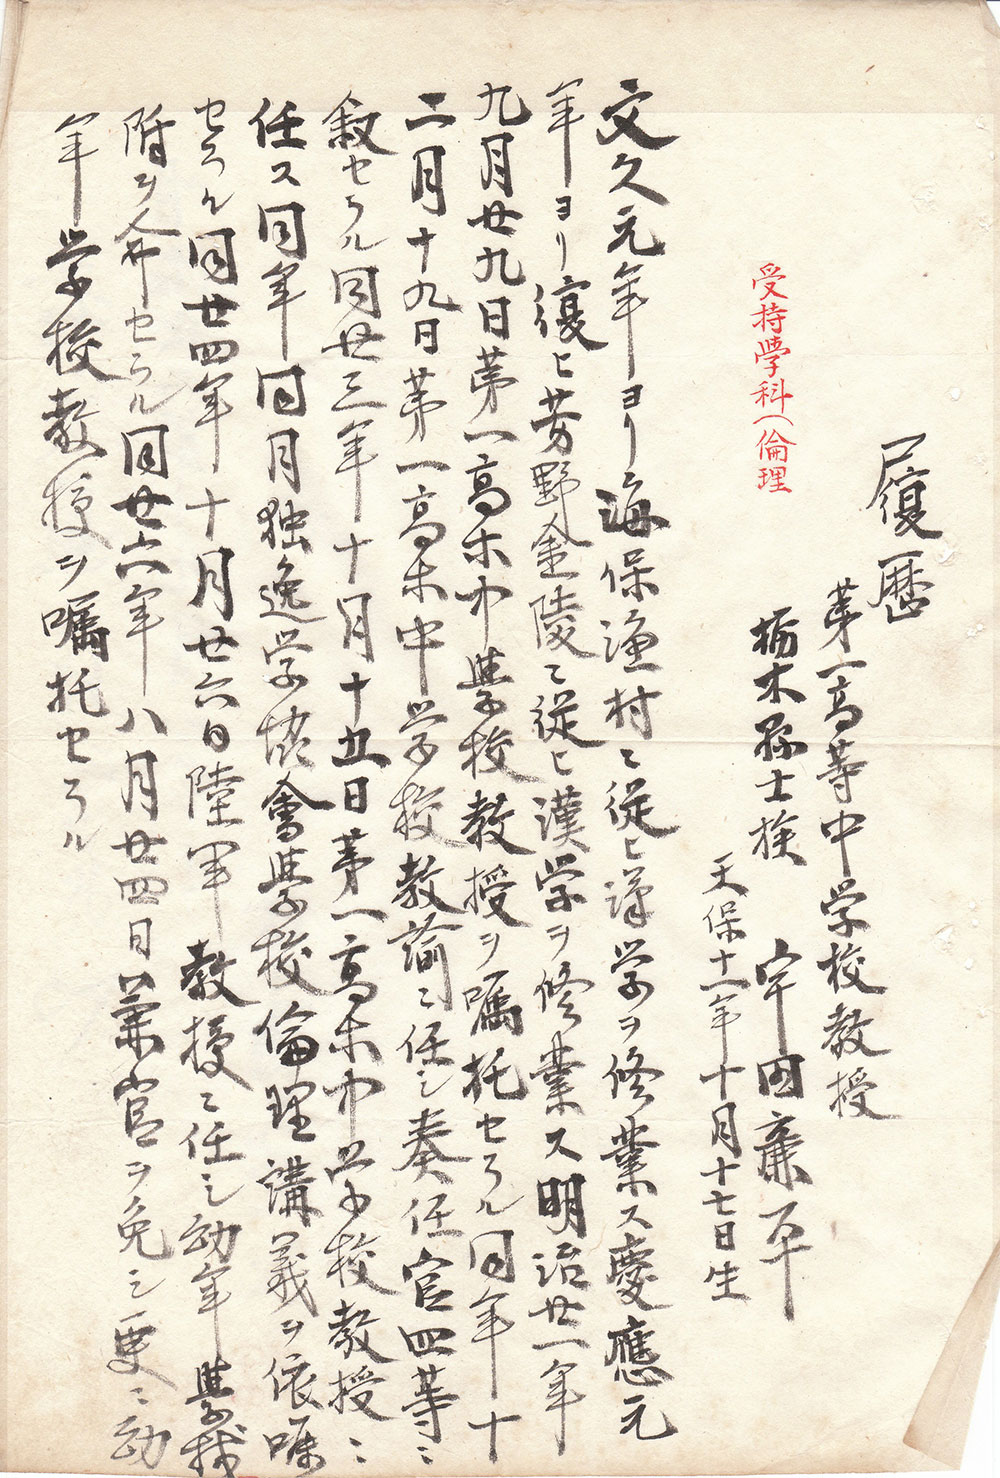 履歴
第一高等中学校教授
栃木縣士族 宇田廉平
天保十一年十月十七日生
受持學科(倫理
文久元年ヨリ海保漁村ニ従ヒ漢学ヲ修業ス慶應元
年ヨリ復ヒ芳野金陵ニ従ヒ漢学ヲ修業ス明治廿一年
九月廿九日第一高等中學校教授ヲ嘱托セラル同年十
二月十九日第一高等中学校教諭ニ任シ奏任官四等ニ
叙セラル同廿三年十月十五日第一高等中学校教授ニ
任ス同年同月独逸学協會學校倫理講義ヲ依嘱
セラル同廿四年十月廿六日陸軍教授ニ任シ幼年學校
附ヲ命セラル同廿六年八月廿四日兼官ヲ免シ更ニ幼
年学校教授ヲ嘱托セラル